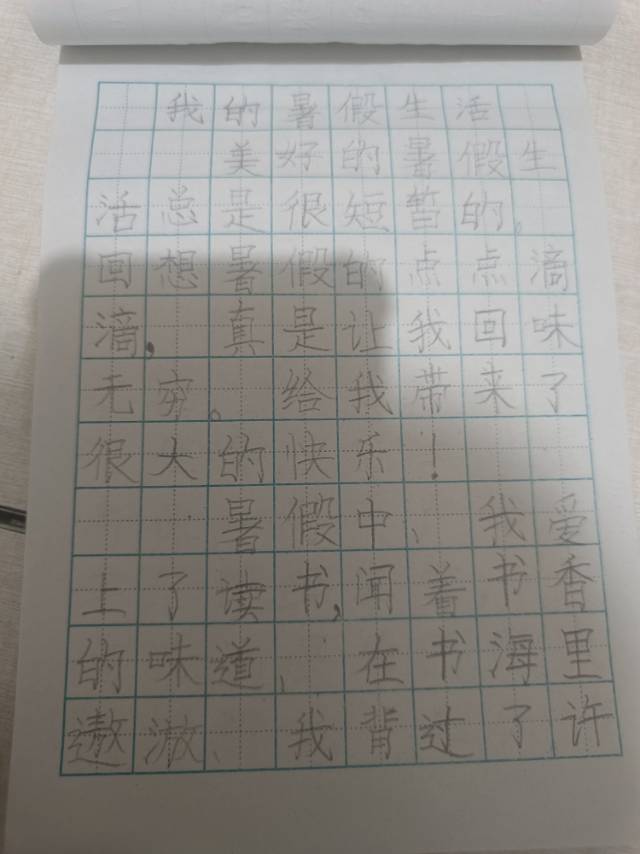 我的暑假生活
美好的暑假生
活总是很短暂的，
回想暑假的点点滴
滴，真是让我回味
无穷。给我带来了
很大的快乐！
暑假中、我爱
上了读书，闻着书香
的味道、在书海里
遨游、我背过了许